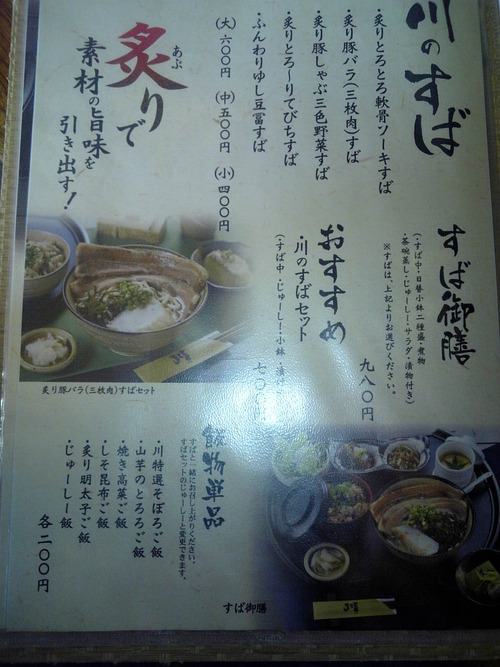 川のすば
・炙りとろとろ軟骨ソーキすば
・炙り豚バラ(三枚肉)すば
・炙り豚しゃぶ三色野菜すば
・炙りとろ〜りてびちすば
・ふんわりゆし豆冨すば
(大)六〇〇円 (中)五〇〇円 (小)四〇〇円
炙りで
あぶ
素材の旨味を
引き出す!
すば御膳
(・すば中・日替小鉢二種盛・煮物
・茶碗蒸し・じゅーしー・サラダ・漬物付き)
※すばは、上記よりお選びください。
九八〇円
おすすめ
・川のすばセット
(・すば中・じゅーしー・小鉢・漬け
七〇〇円
炙り豚バラ(三枚肉)すばセット
飯物単品
すばと一緒にお召し上がりください。
すばセットのじゅーしーと変更できます。
・川特選そぼろご飯
・山芋のとろろご飯
・焼き高菜ご飯
・しそ昆布ご飯
・炙り明太子ご飯
・じゅーしー飯
各二〇〇円
すば御膳